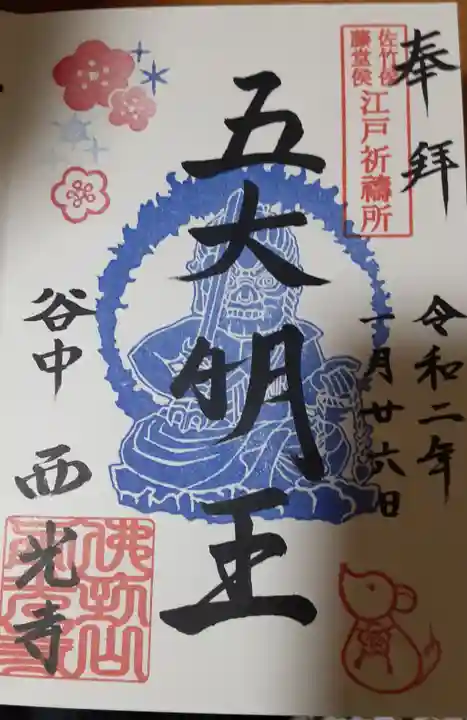 奉拝
佐竹侯
藤堂侯
江戸祈禱所
令和二年
一月廿六日
五大明王
谷中 西光寺